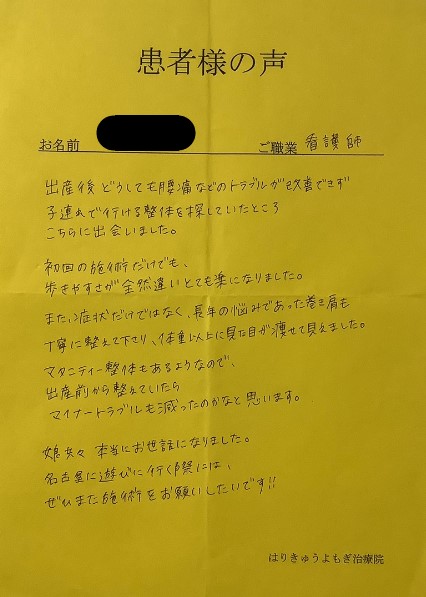 患者様の声
お名前 ご職業 看護師
出産後どうしても腰痛などのトラブルが改善できず
子連れで行ける整体を探していたところ
こちらに出会いました。
初回の施術だけでも、
歩きやすさが全然違いとても楽になりました。
また、症状だけではなく、長年の悩みであった巻き肩も
丁寧に整えて下さり、体重以上に見た目が痩せて見えました。
マタニティー整体もあるようなので、
出産前から整えていたら
マイナートラブルも減ったのかなと思います。
娘共々 本当にお世話になりました。
名古屋に遊びに行く際には、
ぜひまた施術をお願いしたいです!!
はりきゅうよもぎ治療院